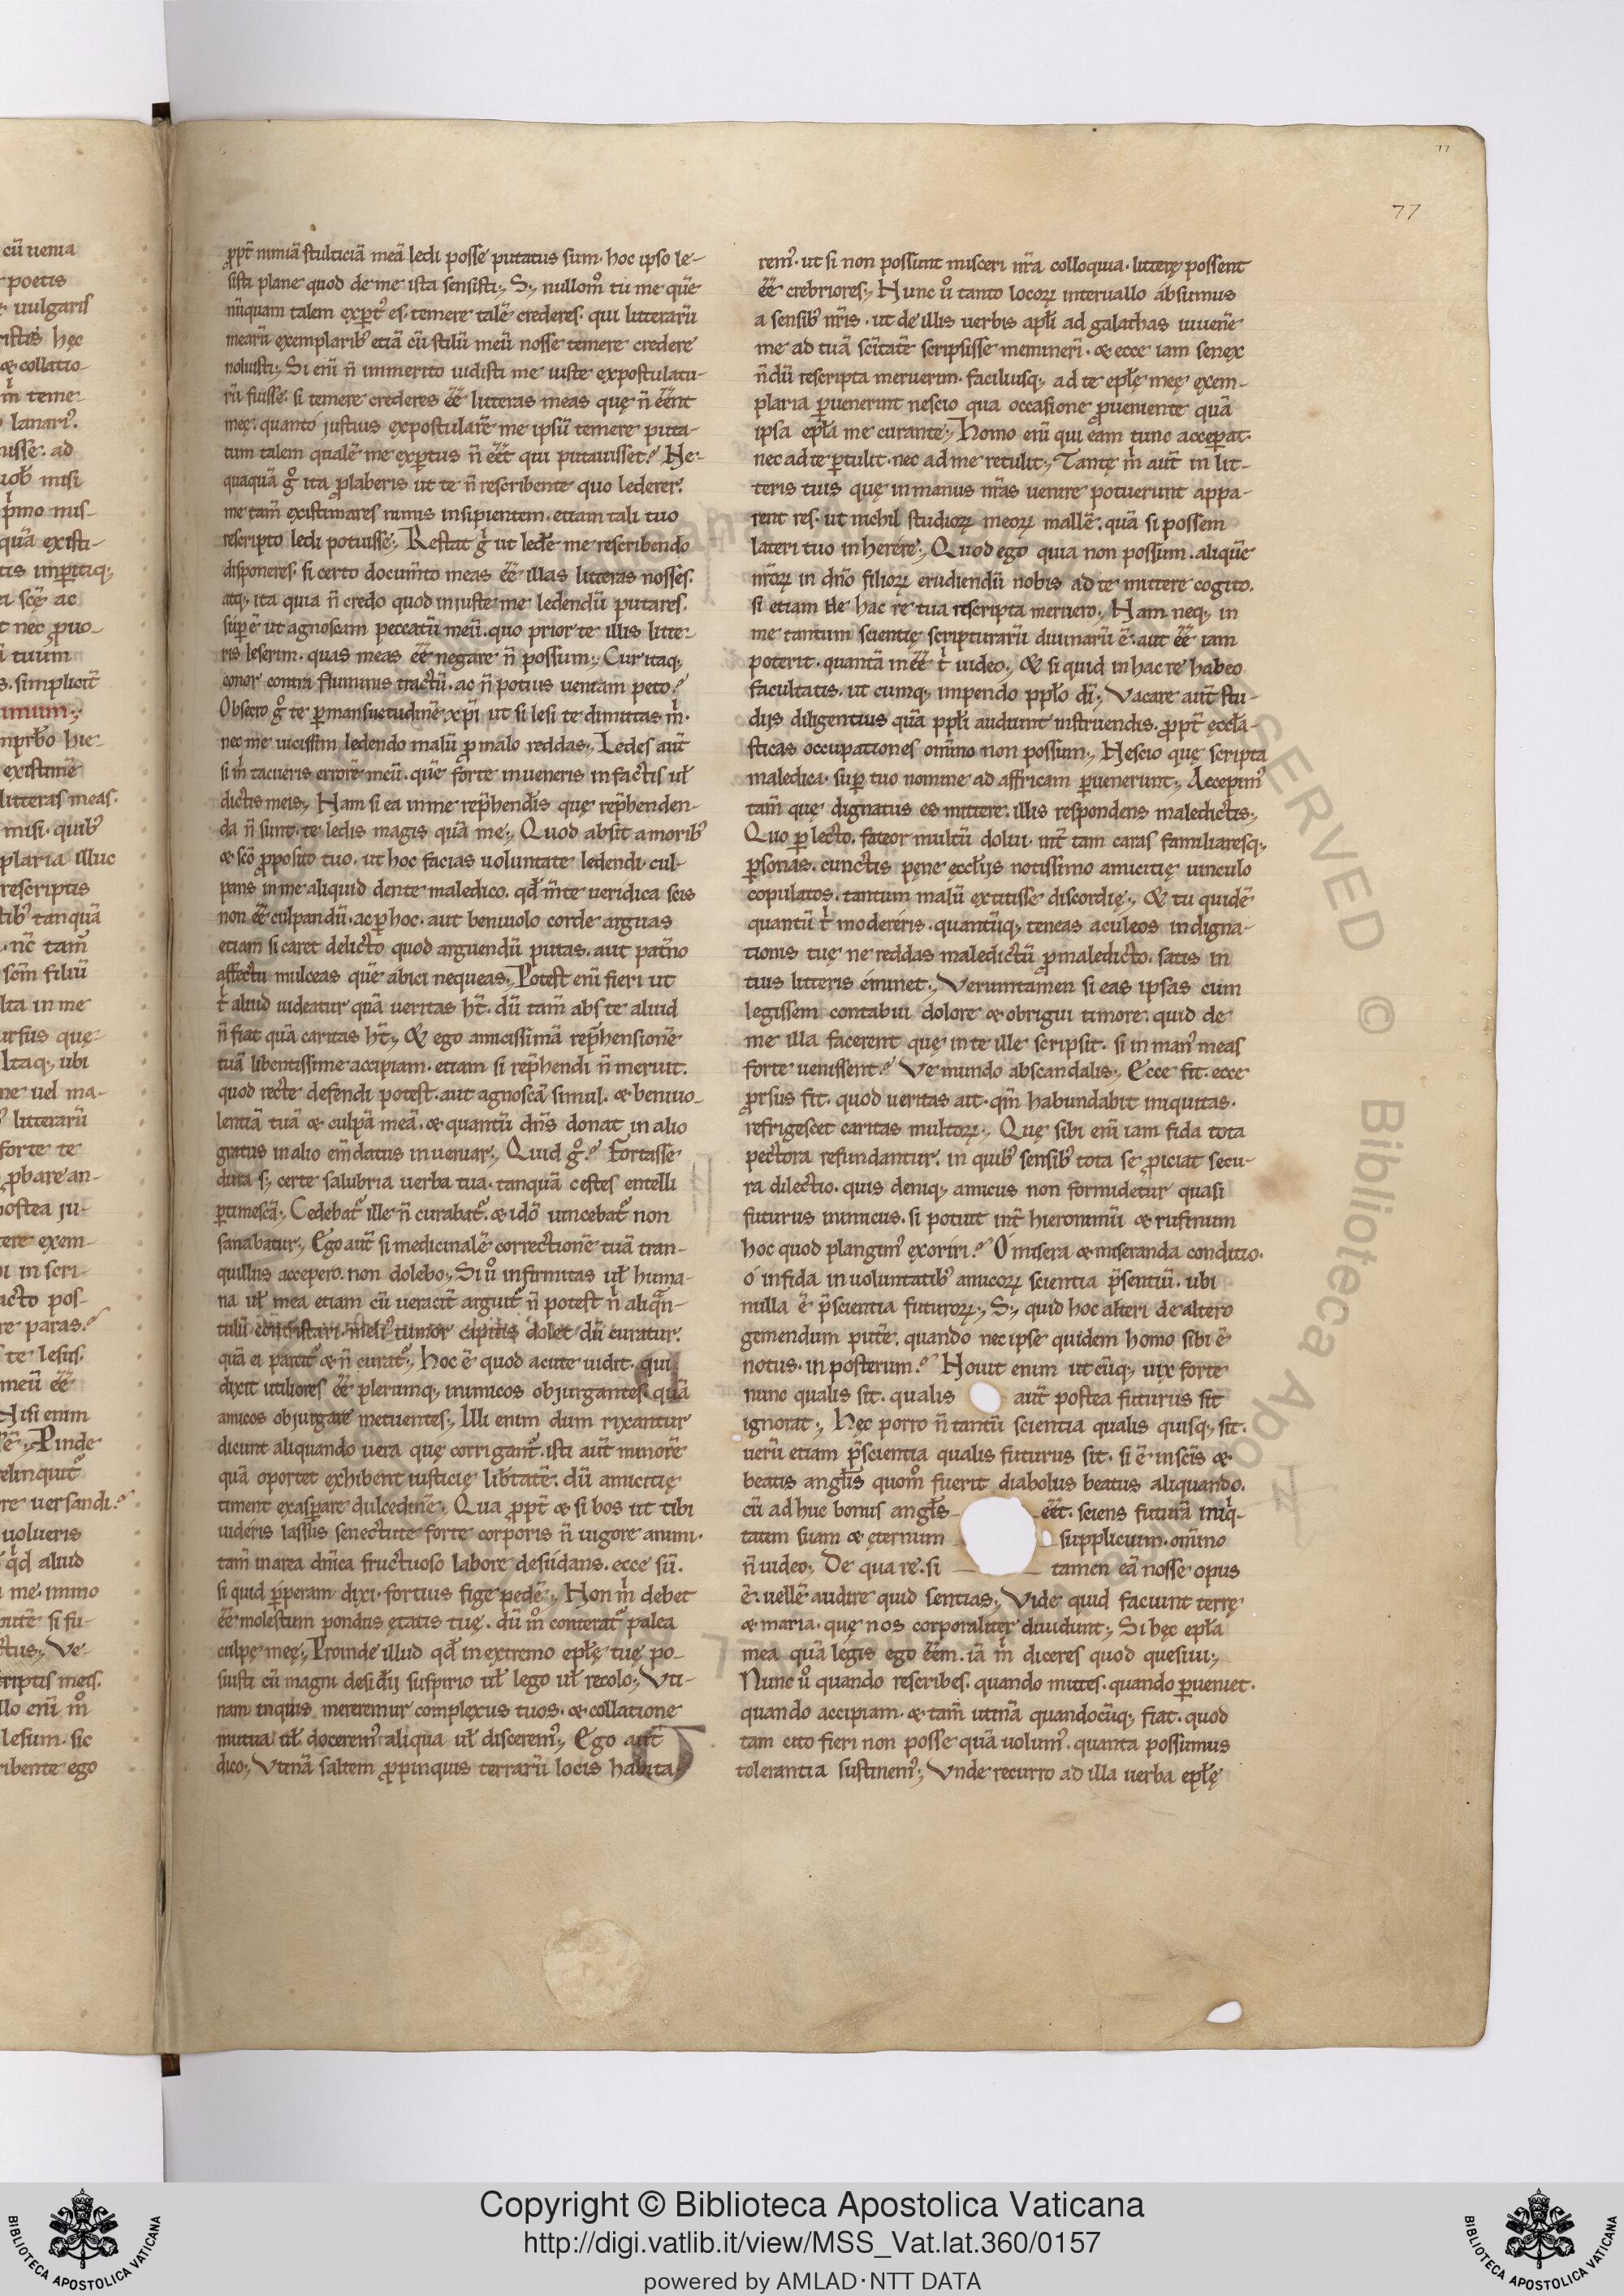 ꝓpt̃ nimiã stulticiã meã ledi posse putatus sum. hoc ipso le-
sisti plane quod de me ista sensisti. S; nullom̊ tu me quẽ
nũquam talem expt̾ es. temere talẽ crederes. qui litterarũ
mearũ exemplarib; etiã cũ stilũ meũ nosse temere credere
noluisti. Si eni̅ n̅ immerito uidisti me iuste expostulatu-
rũ fuisse. si temere crederes ee̅ litteras meas quę n̅ ee̅nt
meę. quanto justius expostulare̅ me ipsũ temere puta-
tum talem qualẽ me exꝑtus n̅ ee̅t qui putauisset? Ne-
quaquã g̊ ita ꝓlaberis ut te n̅ rescribente quo lederer.
me tam̅ existimares nimis insipientem. etiam tali tuo
rescripto ledi potuisse. Restat g̊ ut ledẽ me rescribendo
disponeres. si certo docum̅to meas ee̅ illas litteras nosses.
atq; ita quia n̅ credo quod iniuste me ledendũ putares.
suꝑ ẽ ut agnoscam peccatũ meũ. quo prior te illis litte-
ris leserim. quas meas ee̅ negare n̅ possum. Cur itaq;
conor contra fluminis tractũ. ac n̅ potius ueniam peto?
Obsecro g̊ te ꝑ mansuetudinẽ xp̅i ut si lesi te dimittas m̅.
nec me uicissim ledendo malũ ꝓ malo reddas. Ledes aut̅
si m̅ tacueris errorẽ meũ. quẽ forte inueneris in factis ul̅
dictis meis. Nam si ea in me rep̅hendis quę rep̅henden-
da n̅ sunt. te ledis magis quã me. Quod absit a morib;
& sc̅o ꝓposito tuo. ut hoc facias uoluntate ledendi. cul-
pans in me aliquid dente maledico. qd̅ m̅te ueridica scis
non ee̅ culpandũ. ac ꝑ hoc. aut beniuolo corde arguas
etiam si caret delicto quod arguendũ putas. aut pat̅no
affectu mulceas quẽ abici nequeas. Potest eni̅ fieri ut
t̅ aliud uideatur quã ueritas ht̅. dũ tam̅ abs te aliud
n̅ fiat quã caritas ht̅. & ego amicissimã rep̅hensionẽ
tuã libentissime accipiam. etiam si rep̅hendi n̅ meruit.
quod recte defendi potest. aut agnoscã simul. & beniuo-
lentiã tuã & culpã meã. & quantũ dn̅s donat in alio
gratus in alio em̅datus inueniar. Quid g̊? Fortasse
dura s; certe salubria uerba tua. tanquã cestes entelli
ꝑtimescã. Cedebat̾ ille n̅ curabat̾. & idõ uincebat̾ non
sanabatur. Ego aut̅ si medicinalẽ correctionẽ tuã tran-
quillus accepero. non dolebo. Si u̅ infirmitas ul̅ huma-
na ul̅ mea etiam cũ ueracit̅ arguit̾ n̅ potest n̅ aliq̅n-
tulũ contristari. meli̾ tumor capitis dolet dũ curatur.
quã ei parcit̾ & n̅ curat̾. hoc ẽ quod acute uidit. qui
dixit utiliores ee̅ plerumq; inimicos objurgantes quã
amicos objurgare metuentes. Illi enim dum rixantur
dicunt aliquando uera quę corrigant̾. isti aut̅ minorẽ
quã oportet exhibent iusticię lib̅tatẽ. dũ amicitię
timent exasꝑare dulcedinẽ. Qua ꝓpt̅ & si bos ut tibi
uideris lassus senectute forte corporis n̅ uigore animi.
tam̅ in area dn̅ica fructuoso labore desudans. ecce sũ.
si quid ꝑperam dixi. fortius fige pedẽ. Non m̅ debet
ee̅ molestum pondus ętatis tuę. dũ m̊ conterat̾ palea
culpę meę. Proinde illud qd̅ in extremo epl̅ę tuę po-
suisti cũ magni desiderij suspirio ul̅ lego ul̅ recolo. Vti-
nam inquis mereremur complexus tuos. & collatione
mutua ul̅ docerem̾ aliqua ul̅ discerem̾. Ego aut̅
dico. Vtinã saltem ꝓpinquis terrarũ locis habita-
rem̾. ut si non possunt misceri nr̅a colloquia. litterę possent
ee̅ crebriores. Nunc u̅ tanto locoꝝ interuallo absumus
a sensib; nr̅is. ut de illis uerbis apl̅i ad galathas iuuenẽ
me ad tuã sc̅itatẽ scripsisse meminerĩ. & ecce iam senex
n̅dũ rescripta meruerim. faciliusq; ad te epl̅ę meę exem-
plaria ꝑuenerint nescio qua occasione ꝓueniente quã
ipsa epl̅a me curante. Homo eni̅ qui eam tunc acceꝑat.
nec ad te ꝑtulit. nec ad me retulit. Tantę m̅ aut̅ in lit-
teris tuis quę in manus nr̅as uenire potuerunt appa-
rent res. ut nichil studioꝝ meoꝝ mallẽ. quã si possem
lateri tuo inherere. Quod ego quia non possum. aliquẽ
nr̅oꝝ in dn̅o filioꝝ erudiendũ nobis ad te mittere cogito.
si etiam de hac re tua rescripta meruero. Nam neq; in
me tantum scientię scripturarũ diuinarũ ẽ. aut ee̅ iam
poterit. quantã inee̅ t̅ uideo. & si quid in hac re habeo
facultatis. ut cumq; impendo ppl̅o di̅. Vacare aut̅ stu-
dijs diligentius quã ppl̅i audiunt instruendis. ꝓpt̅ eccl̅a-
sticas occupationes omi̅no non possum. Nescio quę scripta
maledica. suꝑ tuo nomine ad affricam ꝑuenerunt. Accepim̾
tam̅ quę dignatus es mittere. illis respondens maledictis.
Quo ꝑlecto. fateor multũ dolui. int̅ tam caras familiaresq;
ꝑsonas. cunctis pęne eccl̅ijs notissimo amicitię uinculo
copulatos. tantum malũ extitisse discordię. & tu quidẽ
quantũ t̅ modereris. quantũq; teneas aculeos indigna-
tionis tuę ne reddas maledictũ ꝓ maledicto. satis in
tuis litteris eminet. Veruntamen si eas ipsas cum
legissem contabui dolore & obrigui timore. quid de
me illa facerent quę in te ille scripsit. si in man̾ meas
forte uenissent? Ve mundo ab scandalis. Ecce fit. ecce
ꝓrsus fit. quod ueritas ait. qm̅ habundabit iniquitas.
refrigescet caritas multoꝝ. Quę sibi eni̅ iam fida tota
pectora refundantur. in quib; sensib; tota se ꝓiciat secu-
ra dilectio. quis deniq; amicus non formidetur quasi
futurus inimicus. si potuit int̅ hieronimũ & rufinum
hoc quod plangim̾ exoriri? O misera & miseranda conditio.
o infida in uoluntatib; amicoꝝ scientia p̅sentiũ. ubi
nulla ẽ p̅scientia futuroꝝ. S; quid hoc alteri de altero
gemendum putẽ. quando nec ipse quidem homo sibi ẽ
notus. in posterum? Nouit enim ut cũq; uix forte
nunc qualis sit. qualis aut̅ postea futurus sit
ignorat. Hęc porro n̅ tantũ scientia qualis quisq; sit.
uerũ etiam p̅scientia qualis futurus sit. si ẽ in sc̅is &
beatis angl̅is quom̊ fuerit diabolus beatus aliquando.
cũ ad huc bonus angl̅s ee̅t. sciens futurã iniq̅-
tatem suam & ęternum supplicium. omi̅no
n̅ uideo. De qua re. si tamen eã nosse opus
ẽ. uellẽ audire quid sentias. Vide quid faciunt terrę
& maria. quę nos corporaliter diuidunt. Si hęc epl̅a
mea quã legis ego ee̅m. iã m̅ diceres quod quesiui.
Nunc u̅ quando rescribes. quando mittes. quando ꝑueniet.
quando accipiam. & tam̅ utinã quandocũq; fiat. quod
tam cito fieri non posse quã uolum̾. quanta possumus
tolerantia sustinem̾. Vnde recurro ad illa uerba epl̅ę
77
Copyright © Biblioteca Apostolica Vaticana
http://digi.vatlib.it/view/MSS_Vat.lat.360/0157
powered by AMLAD·NTT DATA
BIBLIOTECA APOSTOLICA VATICANA
BIBLIOTECA APOSTOLICA VATICANA